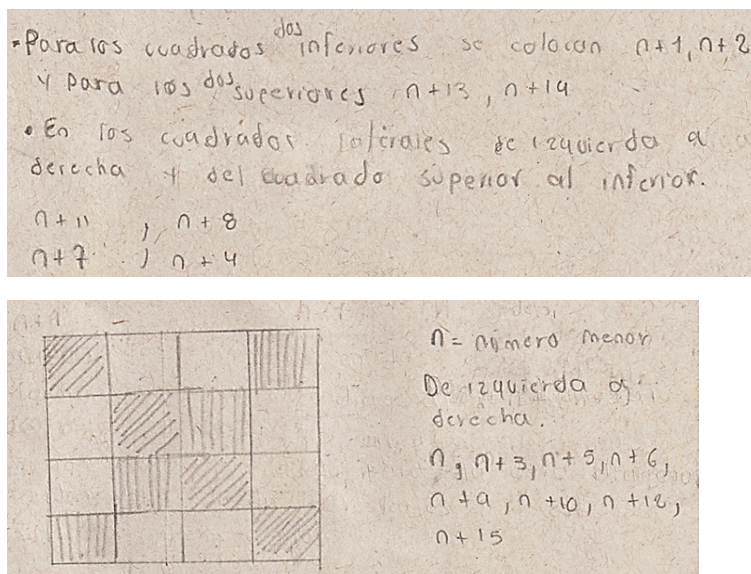 • Para los cuadrados dos inferiores se colocan n+1, n+2
y para los dos superiores n+13, n+14
• En los cuadrados laterales de izquierda a
derecha y del cuadrado superior al inferior.
n+11 , n+8
n+7 , n+4
n = número menor
De izquierda a
derecha.
n, n+3, n+5, n+6,
n+9, n+10, n+12,
n+15